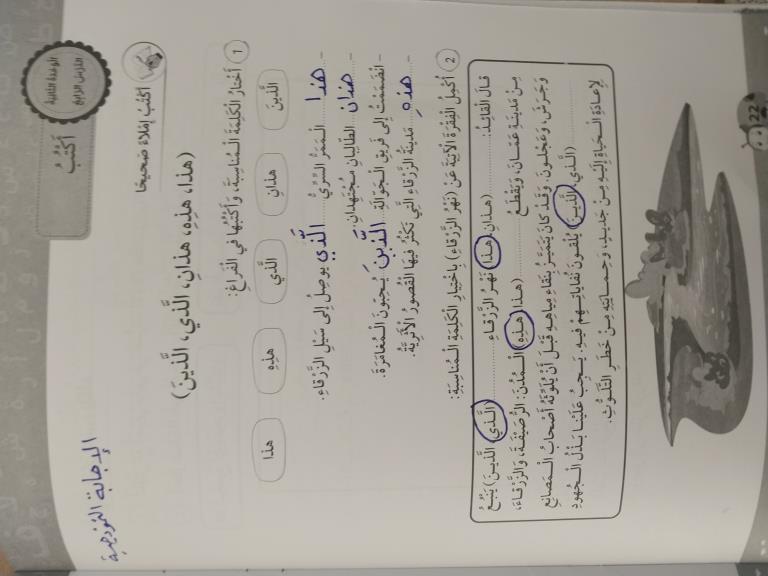 الإجابة النموذجية
الوحدة الثانية
الدرس الرابع
أَكْتُبُ
أَكْتُبُ إِمْلاءً صَحيحًا
(هذا، هذِهِ، هذانِ، الَّذي، الَّذينَ)
1 أَخْتارُ الْكَلِمَةَ الْمُناسِبَةَ، وَأَكْتُبُها في الْفَراغِ:
الَّذينَ هذانِ الَّذي هذِهِ هذا
- هذا الْمَمَرُّ السِّرِّيُّ الَّذي يوصِلُ إِلى سَيْلِ الزَّرْقاءِ.
- هذان الطّالِبانِ مُجْتَهِدانِ.
- انْضَمَمْتُ إِلى فَريقِ الْجَوّالَةِ الَّذينَ يُحِبّونَ الْمُغامَرَةَ.
- هذهِ مَدينَةُ الزَّرْقاءِ الَّتي تَكْثُرُ فيها الْقُصورُ الْأَثَرِيَّةُ.
2 أُكْمِلُ الْفِقْرَةَ الْآتِيَةَ عَنْ (نَهْرِ الزَّرْقاءِ) بِاخْتِيارِ الْكَلِمَةِ الْمُناسِبَةِ:
قالَ الْقائِدُ: ........ (هذانِ، هذا) نَهْرُ الزَّرْقاءِ ........ (الَّذي، الَّذينَ) يَنْبُعُ
مِنْ مَدينَةِ عَمّانَ، وَيَقْطَعُ ........ (هذا، هذِهِ) الْمُدُنَ: الرُّصَيْفَةَ، وَالزَّرْقاءَ،
وَجَرَشَ، وَعَجْلونَ. وَقَدْ كانَ يَتَمَيَّزُ بِنَقاءِ مِياهِهِ قَبْلَ أَنْ يُلَوِّثَهُ أَصْحابُ الْمَصانِعِ
........ (الَّذي، الَّذينَ) يُلْقونَ نُفاياتِهِمْ فيهِ. يَجِبُ عَلَيْنا بَذْلُ الْجُهودِ
لِإِعادَةِ الْحَياةِ إِلَيْهِ مِنْ جَديدٍ، وَحِمايَتِهِ مِنْ خَطَرِ التَّلَوُّثِ.
22